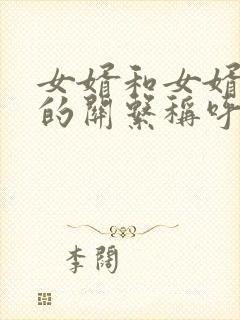 女婿和女婿
的關繫稱呼
李闊